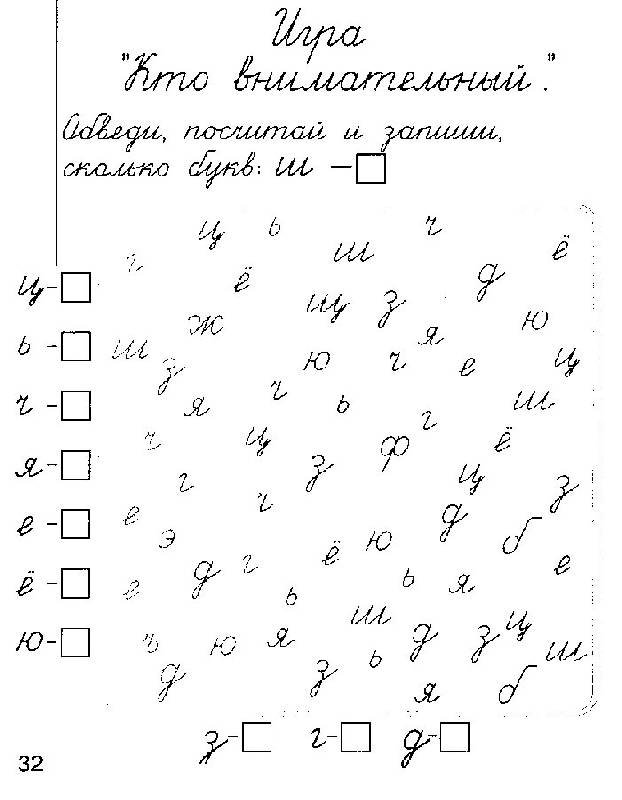 Игра
"Кто внимательный".
Обведи, посчитай и запиши,
сколько букв: ш –
ц ь ш ч ё
г ё д
ц –
щ з ю
ж я
ь – ш з ю ч е ц
ч – я ч ь г ш
ч ц ф ё
я – г з ц з
е – е э ч ю д б
ё – е д г ё ь ь я е
ю – ч ю я ш д з ц ш
д з ь я б
з – г – д –
32